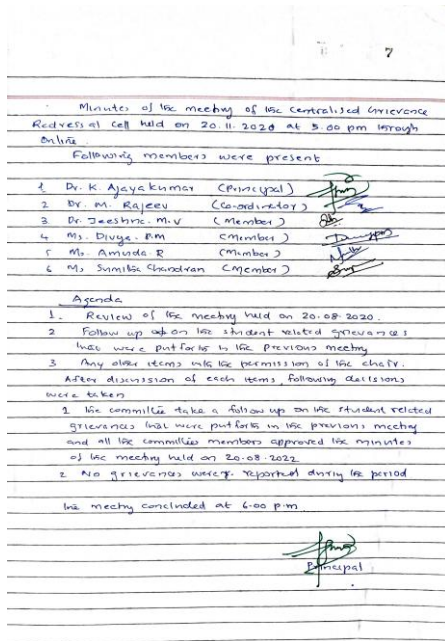 7
Minutes of the meeting of the Centralised Grievance
Redressal cell held on 20.11.2020 at 5.00 pm through
Online.
Following members were present
1 Dr. K. Ajayakumar (Principal)
2 Dr. M. Rajeev (Co-ordinator)
3. Dr. Jeeshna. M.V (Member)
4 Ms. Divya. P.M (member)
5 Ms. Amuda. R (Member)
6 Ms Sumitha Chandran (Member)
Agenda
1. Review of the meeting held on 20.08.2020.
2 Follow up on the student related grievances
that were put forth in the previous meeting
3 Any other items with the permission of the chair.
After discussion of each items, following decisions
were taken
1 the committee take a follow up on the student related
grievances that were put forth in the previous meeting
and all the committee members approved the minutes
of the meeting held on 20.08.2022
2 No grievances were reported during the period
The meeting concluded at 6.00 p.m
Principal